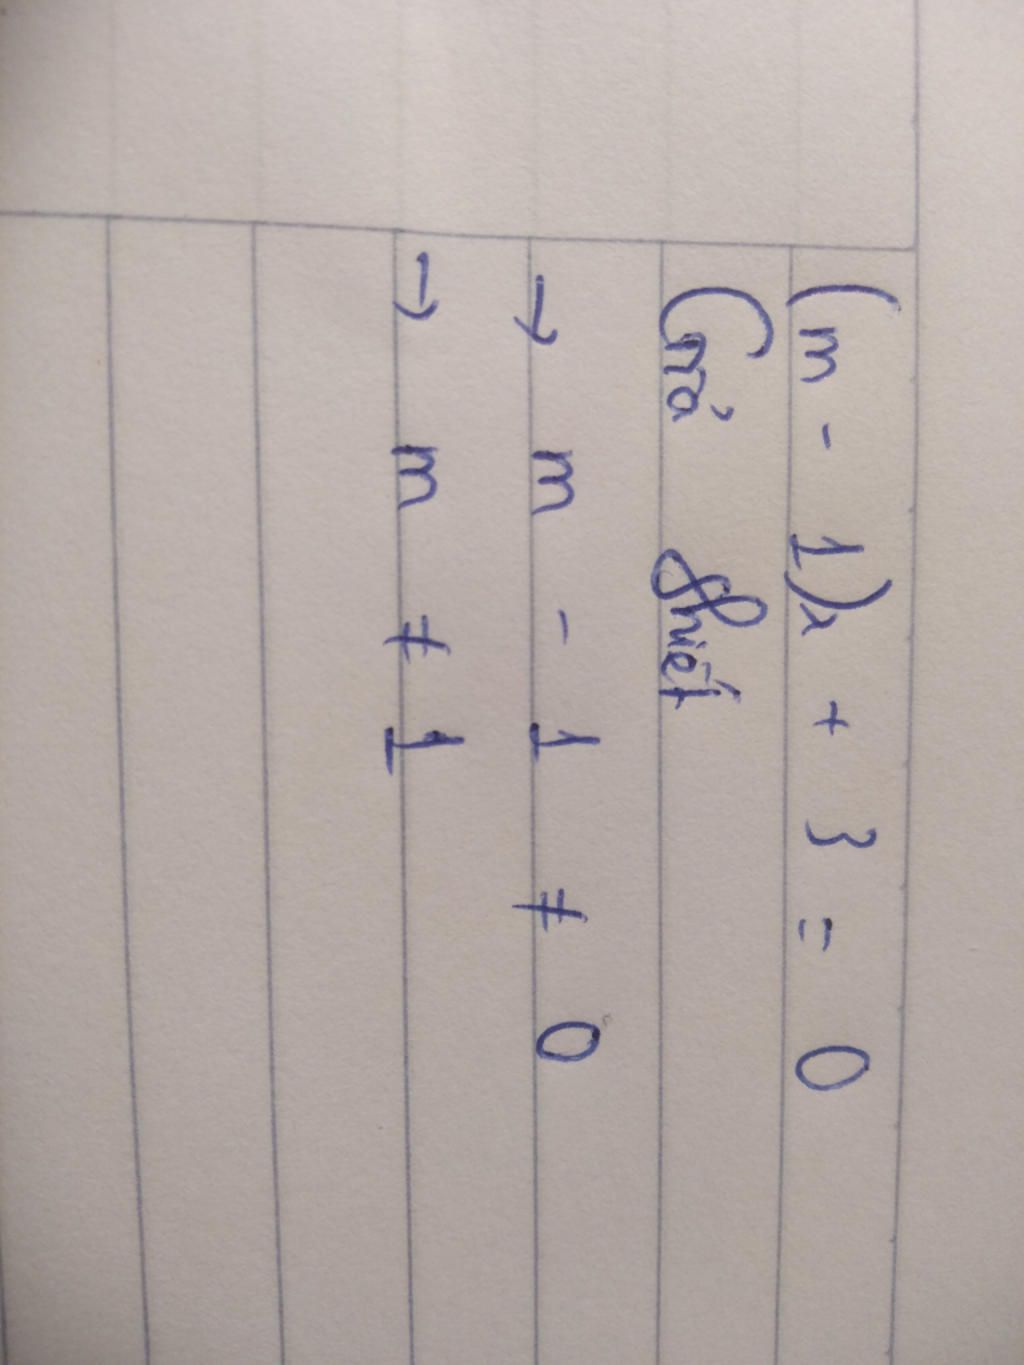 (m - 1)x + 3 = 0
Giả thiết
→ m - 1 ≠ 0
→ m ≠ 1